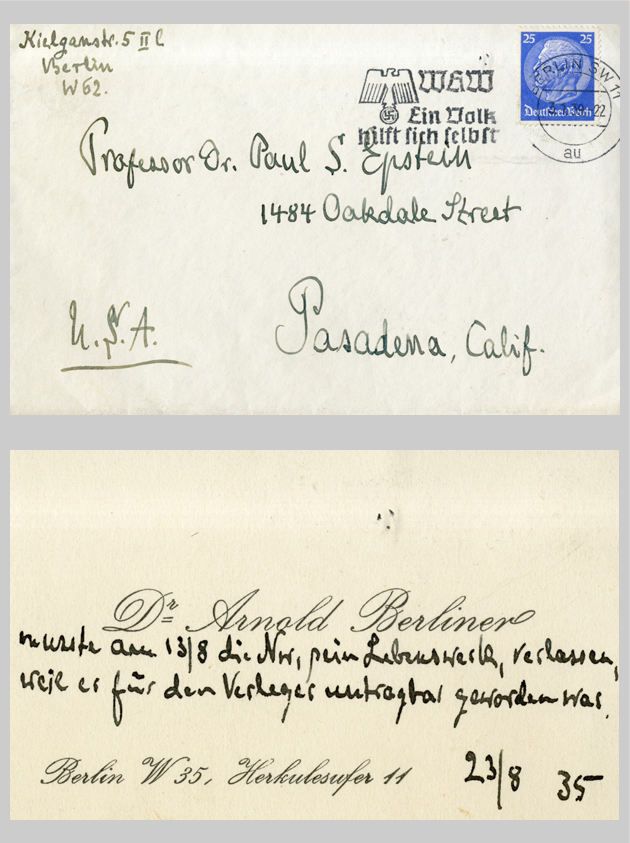 Kielganstr. 5 II l
Berlin
W 62.
25 25
Deutsches Reich
BERLIN SW 11
22
au
WHW
Ein Volk
hilft sich selbst
Professor Dr. Paul S. Epstein
1484 Oakdale Street
U.S.A.
Pasadena, Calif.
Dr. Arnold Berliner
musste am 13/8 die Nw, sein Lebenswerk, verlassen,
weil er für den Verleger untragbar geworden war.
Berlin W 35, Herkulesufer 11
23/8 35